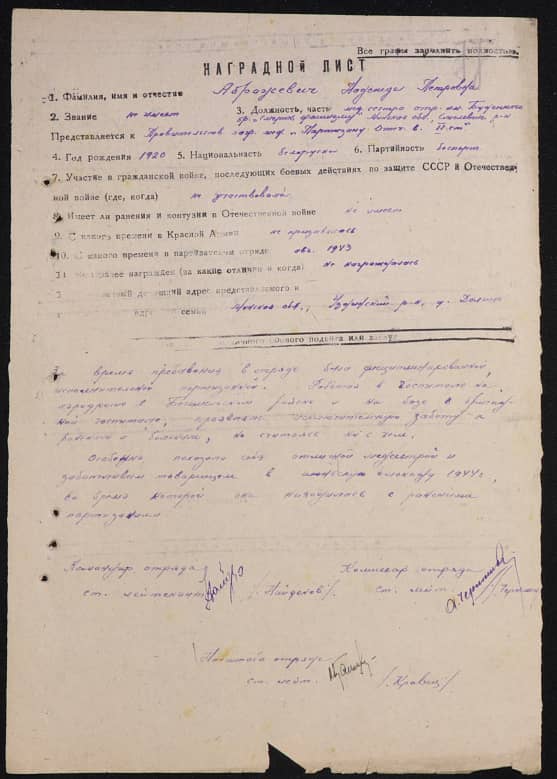 Все графы заполнять полностью.
НАГРАДНОЙ ЛИСТ
1. Фамилия, имя и отчество Аброжевич Надежда Петровна
2. Звание не имеет 3. Должность, часть медсестра отр. им. Буденного
бр. Минской обл. р-н
Представляется к Правительств. наг. мед. "Партизану Отеч. в. II ст."
4. Год рождения 1920 5. Национальность белоруска 6. Партийность беспарт.
7. Участие в гражданской войне, последующих боевых действиях по защите СССР и Отечествен-
ной войне (где, когда) не участвовала
8. Имеет ли ранения и контузии в Отечественной войне не имеет
9. С какого времени в Красной Армии не призывалась
10. С какого времени в партизанском отряде 1943
ранее награжден (за какие отличия и когда) не награждалась
домашний адрес представляемого к
адрес семьи Минская обл., Узденский р-н, д.
боевого подвига или заслуг
время пребывания в отряде была дисциплинированной,
исполнительной партизанкой. Работая в госпитале
в районе и на базе в бригад-
ной госпитале, проявляла исключительную заботу о
раненых и больных, не считаясь ни с чем.
Особенно показала себя отличной медсестрой и
заботливым товарищем в июньскую блокаду 1944 г.,
во время которой она находилась с ранеными
партизанами.
Командир отряда Комиссар отряда
ст. лейтенант /Найденов/. ст. лейт.
отряда
ст. лейт. /Кравец/